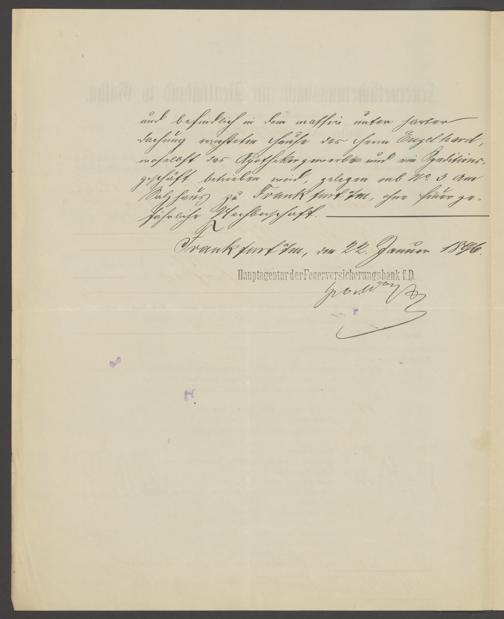 und befindlich in dem massiv unter harter
Dachung errichteten Hause des Herrn Engelhard,
woselbst das Apothekergewerbe und ein Speditions-
geschäft betrieben wird, gelegen sub No. 3 am
Salzhaus zu Frankfurt a/M, ohne feuerge-
fährliche Nachbarschaft.
Frankfurt a/M, den 22. Januar 1896.
Hauptagentur der Feuerversicherungsbank f. D.